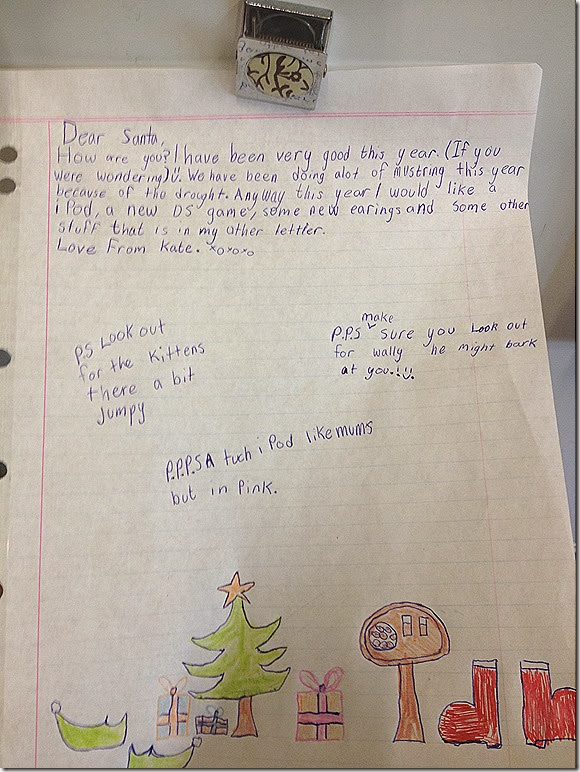 Dear Santa,
How are you? I have been very good this year. (If you
were wondering) ü. We have been doing alot of mustring this year
because of the drought. Anyway this year I would like a
iPod, a new DS game, some new earings and some other
stuff that is in my other lettler.
Love From Kate. xoxoxo
P.S Look out
for the Kittens
there a bit
Jumpy
P.P.S make sure you Look out
for wally he might bark
at you.!!ü
P.P.P.S A tuch iPod like mums
but in Pink.